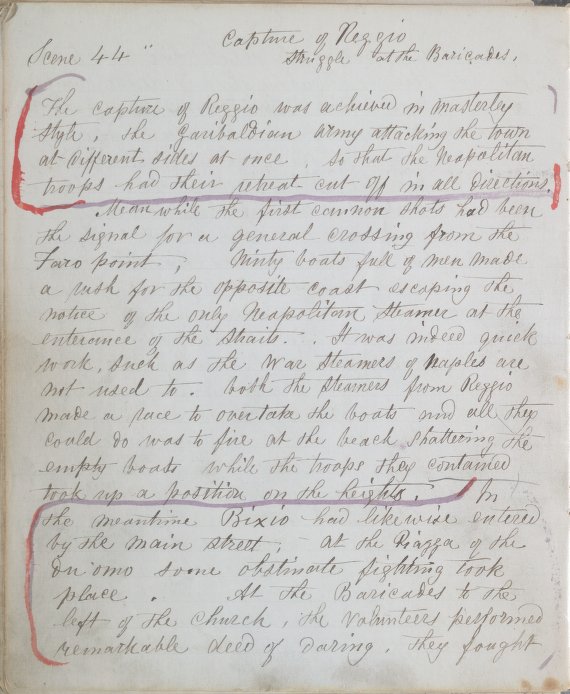 Capture of Reggio
Scene 44" Struggle at the Baricades.
The capture of Reggio was achieved in masterley
style, the Garibaldian army attacking the town
at different sides at once, so that the Neapolitan
troops had their retreat cut off in all directions.
Mean while the first cannon shots had been
the signal for a general crossing from the
Faro point; Ninty boats full of men made
a rush for the opposite coast escaping the
notice of the only Neapolitan Steamer at the
enterance of the straits.. It was indeed quick
work, such as the War Steamers of Naples are
not used to. both the steamers from Reggio
made a race to overtake the boats and all they
could do was to fire at the beach shattering the
empty boats while the troops they contained
took up a position on the heights. In
the meantime Bixio had likewise entered
by the main street, - at the Piazza of the
Du'omo some obstinate fighting took
place. At the Baricades to the
left of the Church, the Volunteers performed
remarkable deed of daring, they fought